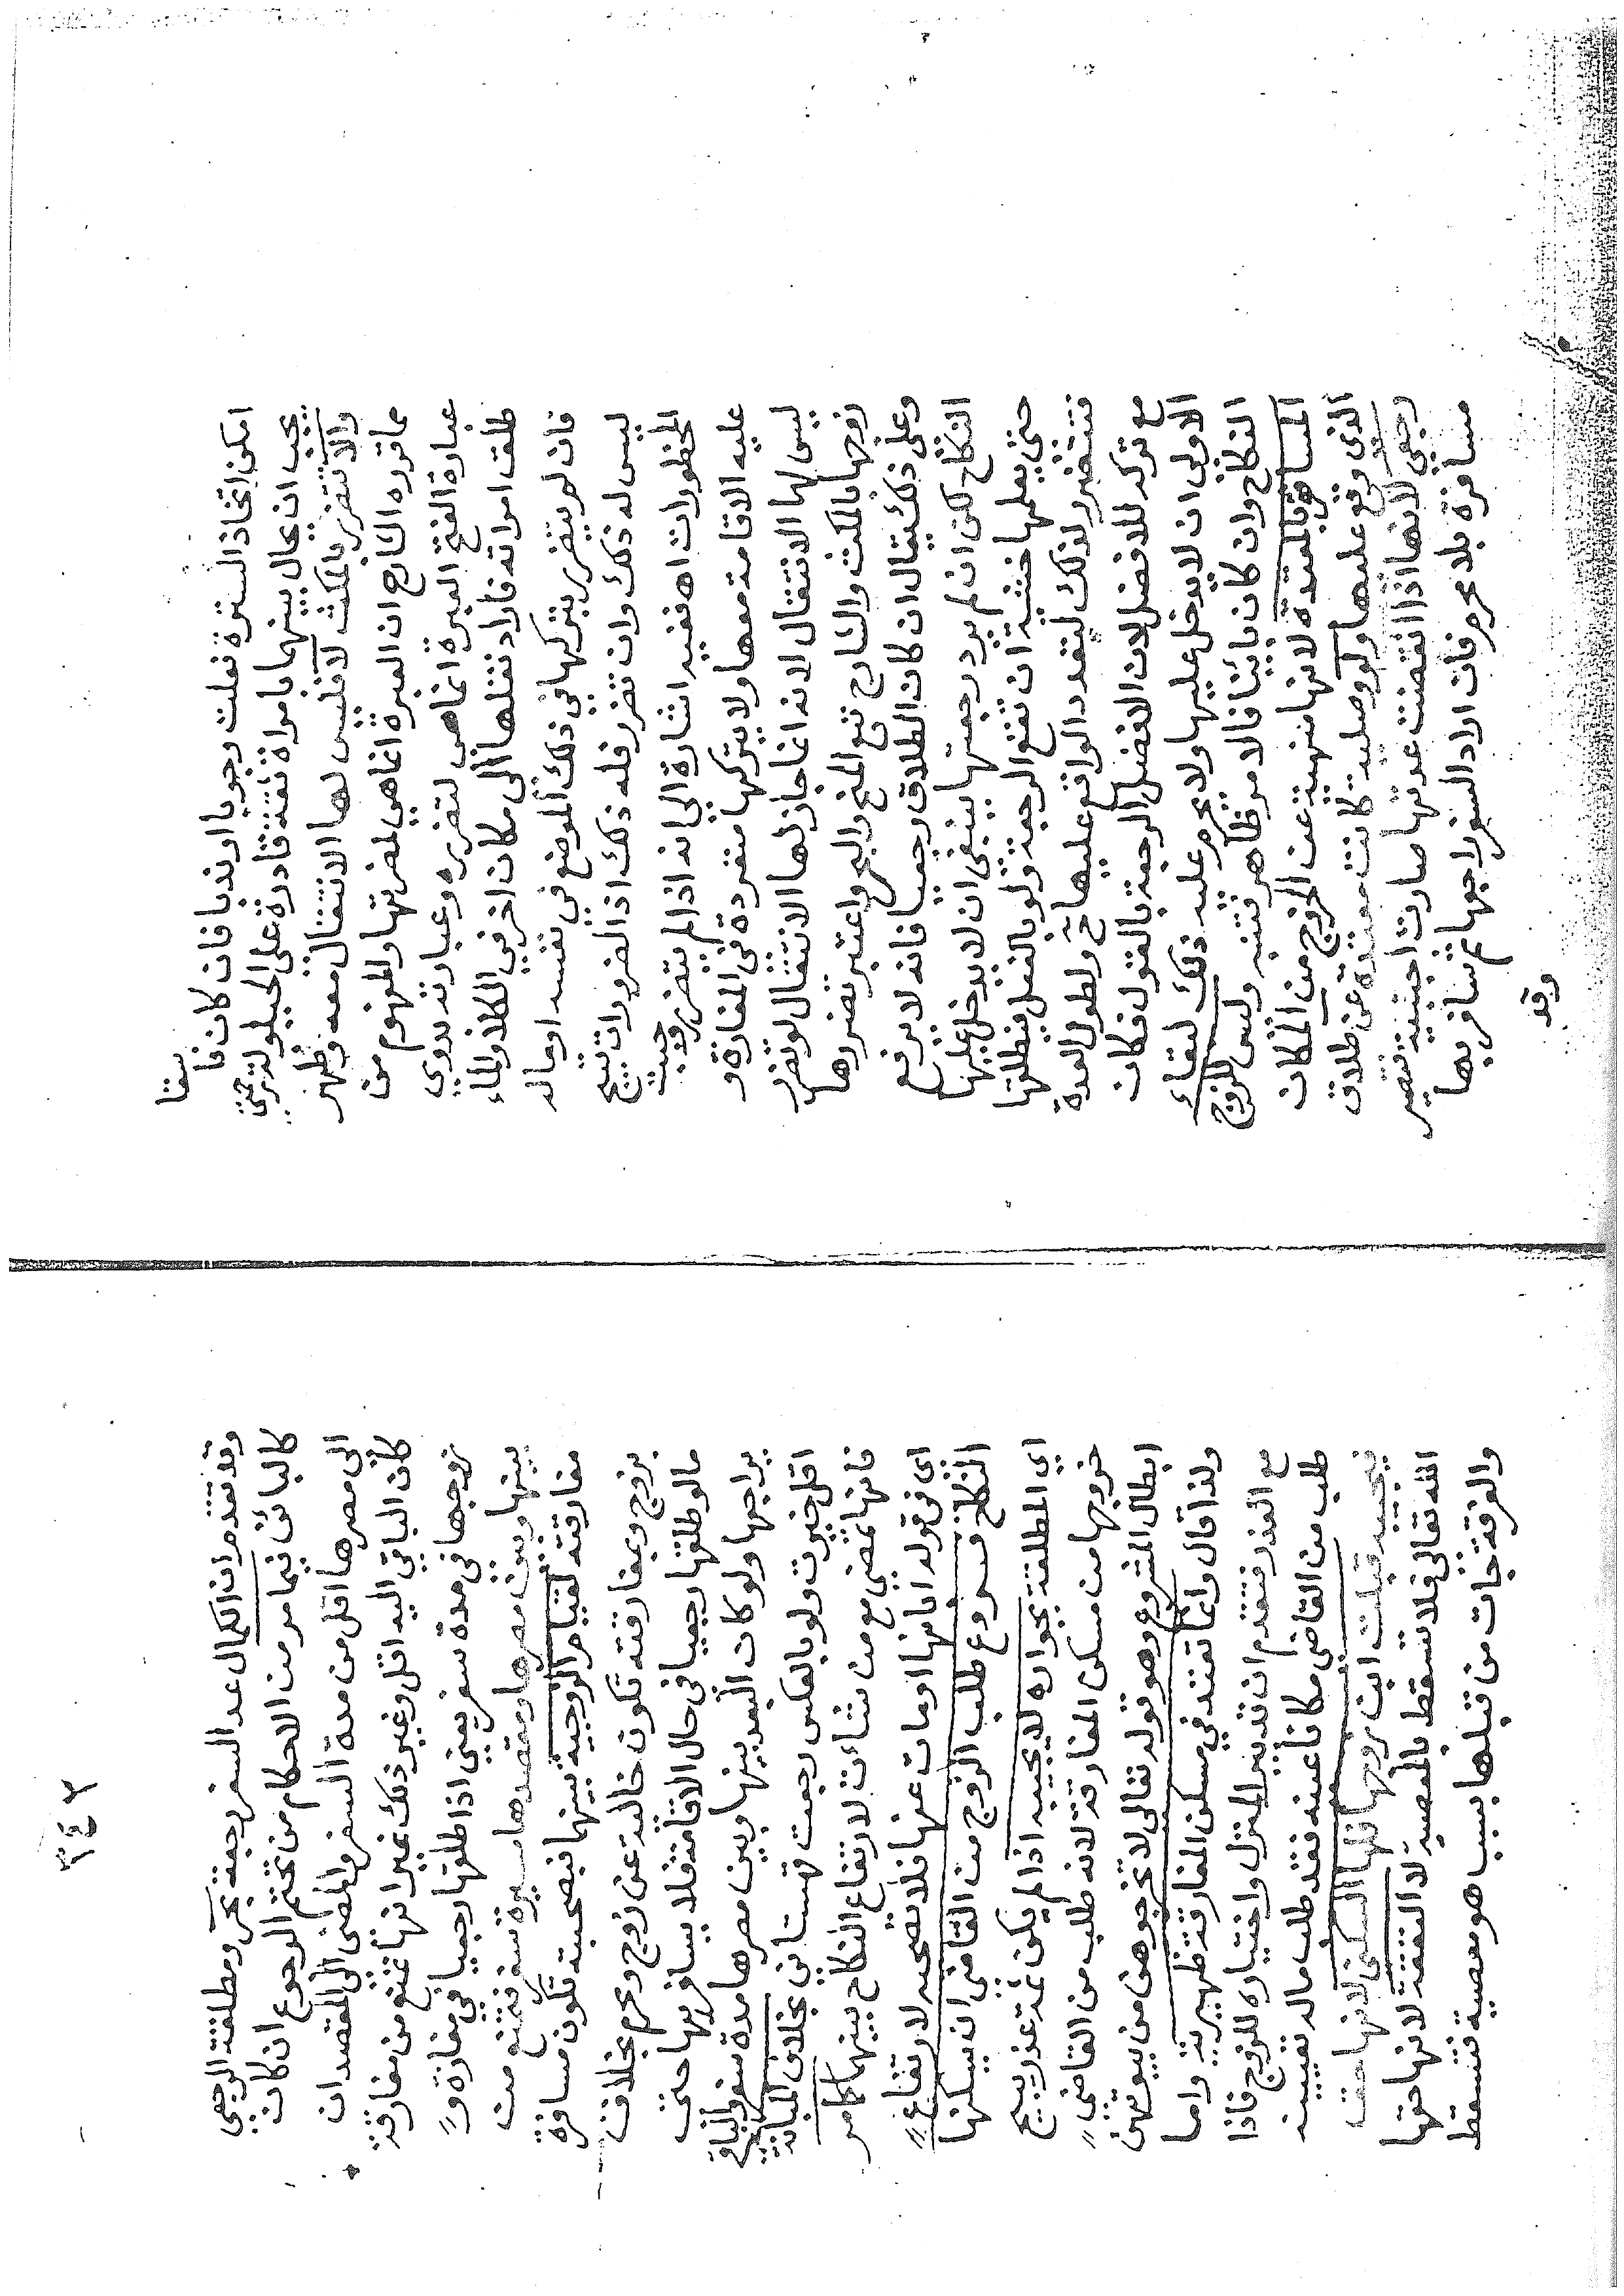 امكن اتخاذ السترة فعلت وجوبا او ندبا فان كان فا
سقا
يجب ان يحال بينهما بامراة ثقة قادرة على الحيلولة حتى
والا تتضرر بالمكث لا فليس لها الانتقال معه وظهر
مما قرره الشارح ان العبرة انما هي لمضرتها والمفهوم من
عبارة الفتح العبرة انما هى لتضرره وعبارته بدوي
طلق امراته فاراد نقلها الى مكان اخر في الكلاء والماء
فان لم يتضرر بتركها في ذلك الموضع في نفسه او ماله
ليس له ذلك وان تضرر فله ذلك اذ الضرورات تبيح
المحظورات اه ففيه اشارة الى انه اذا لم يتضرر وجب
عليه الاقامة معها ولا يتركها منفردة فى المفازة و
ليس لها الانتقال لانه انما جاز لها الانتقال لو تضرر
زوجها بالمكث والشارح تبع المنح والبحر واعتبر تضررها
وعلى ذلك يقال ان كان الطلاق رجعيا فانه لا يرفع
النكاح لكن ان لم يرد رجعتها ينبغى ان لا يدخل عليها
حتى يعلمها خشية ان تقع الرجعة ولو بالفعل فيطلقها
فتتضرر لذلك لتعدد الواقع عليها ح ولطول العدة
مع تركه للافضل لان الافضل الرجعة بالقول فكان
الاولى ان لا يدخل عليها ولا يحرم عليه ذلك لبقاء
النكاح وان كان بائنا فالامر ظاهر فتنبه وليس للزوج
المسافرة بالمعتدة لانها منهية عن الخروج من المكان
الذى وقع عليها ولو وصلية كانت معتدة عن طلاق
رجعي لانها اذا انقضت عدتها صارت اجنبية فتصير
مسافرة بلا محرم فان اراد السفر راجعها ثم سافر بها
وقد
٣٤٢
وقد تقدم ان الكمال عد السفر رجعة بحر ومطلقة الرجعي
كالبائن فيما مر من الاحكام من تحتم الرجوع ان كان
الى مصرها اقل من مدة السفر والمضى الى المقصد ان
كان الباقي اليه اقل وغير ذلك غير انها تمنع من مفارقة
زوجها في مدة سفر يعني اذا طلقها رجعيا في مفازة و
بينها وبين مصرها ومقصدها مسيرة سفر تمنع من
مفارقته لقيام الزوجية بينهما فبصحبته تكون مسافرة
بزوج وبمفارقته تكون خالية عن زوج ومحرم بخلاف
مالو طلقها رجعيا في حال الاقامة فلا يسافر بها حتى
يراجعها ولو كان البعد بينها وبين مصرها مدة سفر والباقي
اقل خيرت ولو بالعكس رجعت قهستاني بخلاف المبانة
فانها تمضي مع من شاءت لارتفاع النكاح بينهما كما مر
اى فى قوله ابانها او مات عنها فلا تصحبه لارتفاع
النكاح فــروع طلب الزوج من القاضي ان يسكنها
اي المطلقة بجواره لا يجيبه اذا لم يكن ثمة عذر يبيح
خروجها من مسكن المفارقة لانه طلب من القاضي
ابطال المشروع وهو قوله تعالى لا تخرجوهن من بيوتهن
ولذا قال وانما تعتد في مسكن المفارقة ظهيرية واما
مع العذر فتقدم ان تدبير المنزل واختياره للزوج فاذا
طلب من القاضي مكانا عينه فقد طلب ماله تعيينه
فيجيبه قبلت ابن زوجها فلها السكنى لانها حق
الله تعالى فلا تسقط بالمعصية لا النفقة لانها حقها
والفرقة جات من قبلها بسبب هو معصية فتسقط